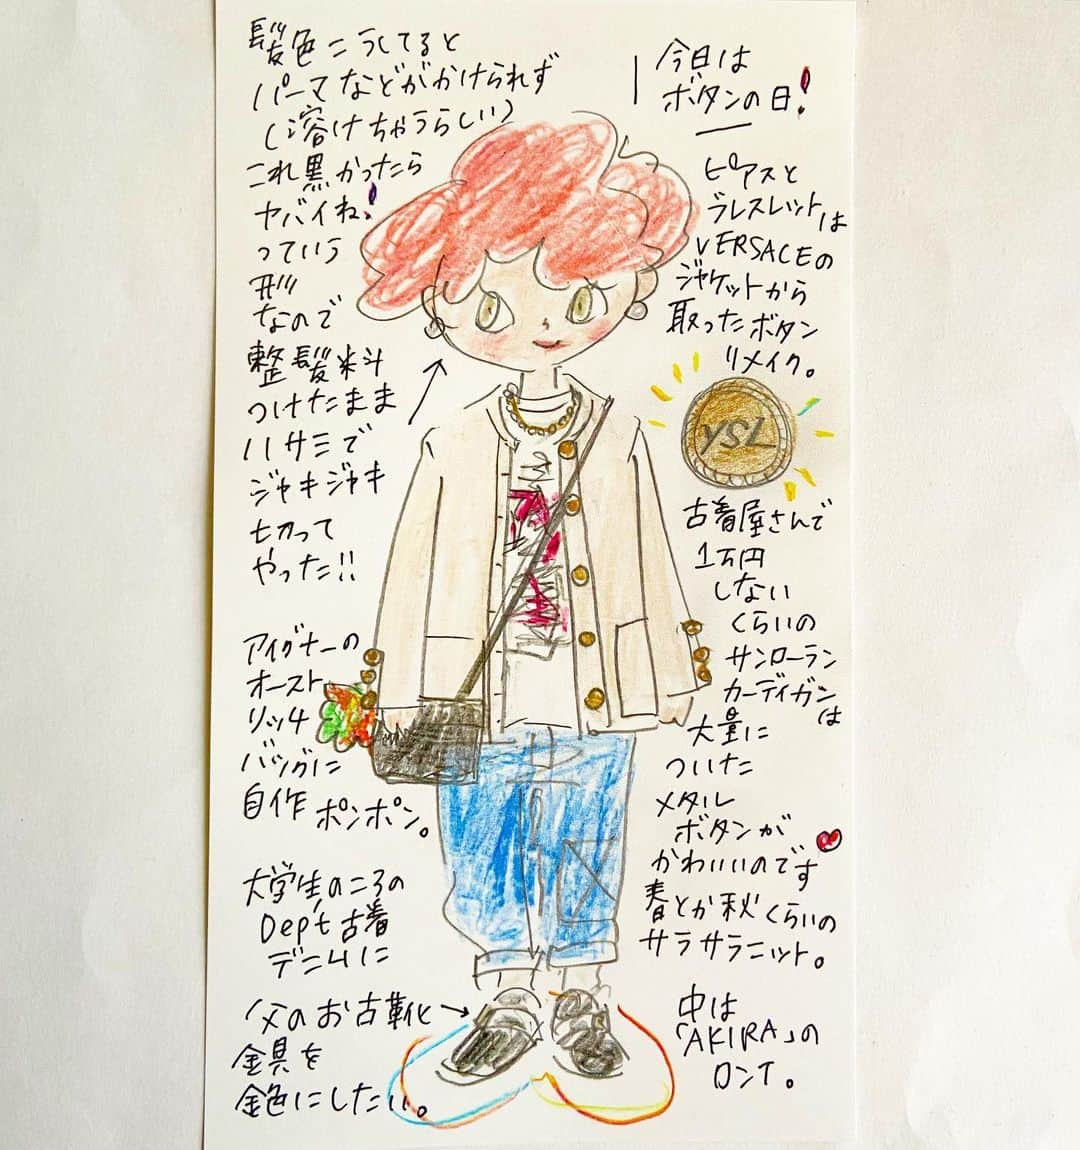 髪色こうしてると
パーマなどがかけられず
(溶けちゃうらしい)
これ黒かったら
ヤバイね!
っていう
形
なので
整髪料
つけたまま
ハサミで
ジャキジャキ
切って
やった!!
アイグナーの
オースト
リッチ
バッグに
自作 ポンポン。
大学生のころの
Dep't 古着
デニムに
父のお古靴→
金具を
金色にしたい。
今日は
ボタンの日!
ピアスと
ブレスレットは
VERSACEの
ジャケットから
取ったボタン
リメイク。
YSL
古着屋さんで
1万円
しない
くらいの
サンローラン
カーディガンは
大量に
ついた
メタル
ボタンが
かわいいのです
春とか秋くらいの
サラサラニット。
中は
「AKIRA」の
ロンT。